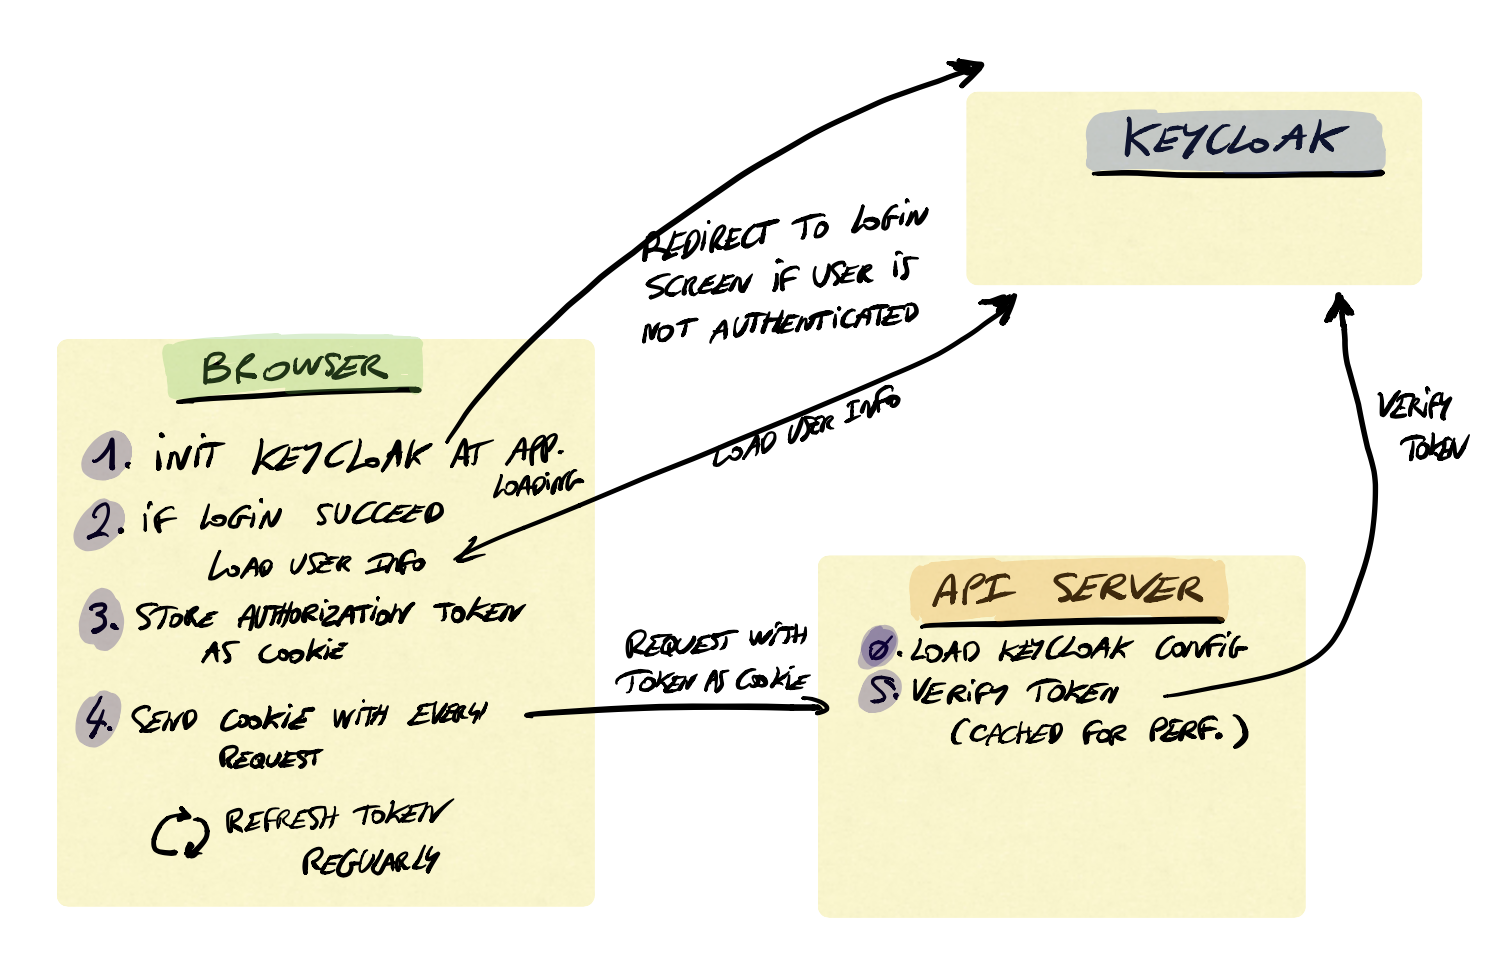 KEYCLOAK
REDIRECT TO LOGIN
SCREEN IF USER IS
NOT AUTHENTICATED
BROWSER
1. INIT KEYCLOAK AT APP.
LOADING
2. IF LOGIN SUCCEED
LOAD USER INFO
3. STORE AUTHORIZATION TOKEN
AS COOKIE
4. SEND COOKIE WITH EVERY
REQUEST
REFRESH TOKEN
REGULARLY
LOAD USER INFO
REQUEST WITH
TOKEN AS COOKIE
VERIFY
TOKEN
API SERVER
0. LOAD KEYCLOAK CONFIG
5. VERIFY TOKEN
(CACHED FOR PERF.)